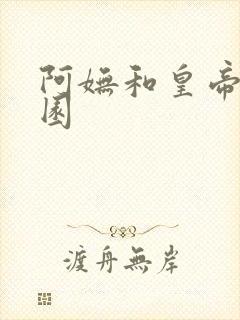 阿嫵和皇帝
園
渡舟無岸